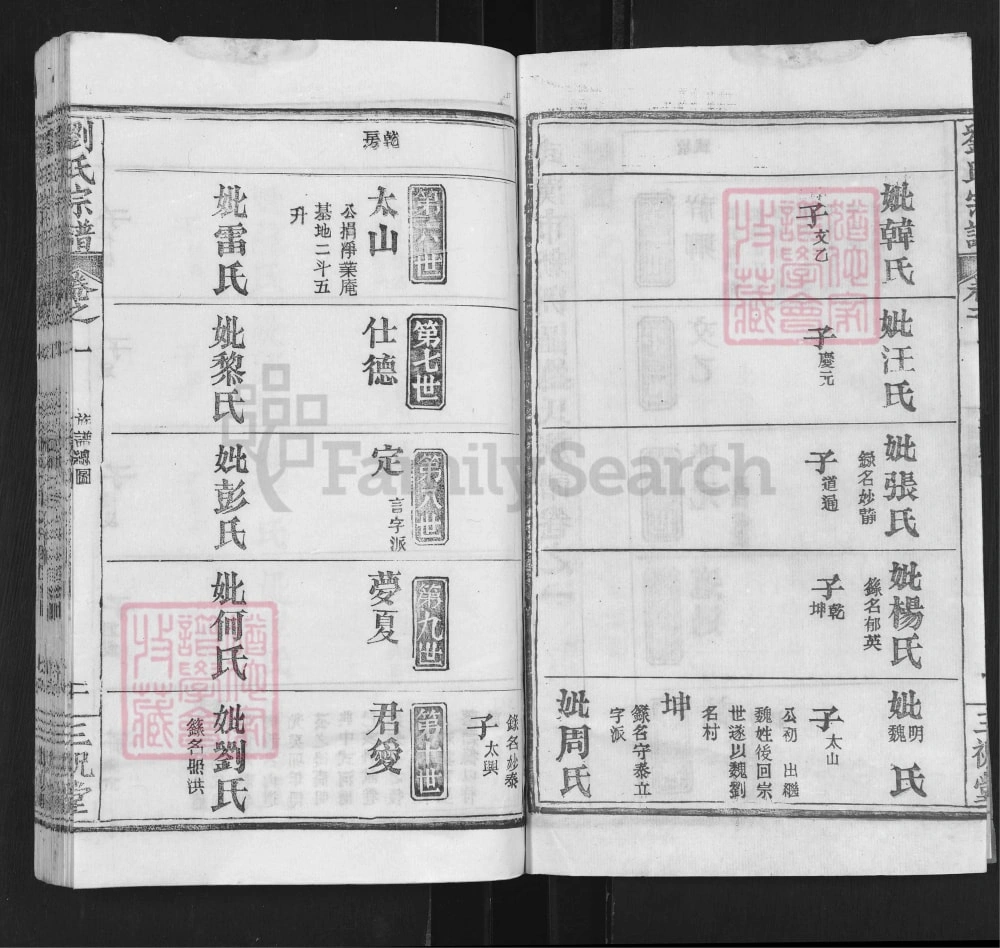 妣韓氏
子文乙
妣汪氏
子慶元
妣張氏
錄名妙靜
子道通
妣楊氏
錄名郁英
子乾
坤
妣明魏氏
子太山
公初出繼
魏姓後回宗
世遂以魏劉
名村
坤
錄名守泰立
字派
妣周氏
錄名妙泰
子太興
乾房
第六世
太山
公捐淨業庵
基地二斗五
升
妣雷氏
第七世
仕德
妣黎氏
第八世
定
言字派
妣彭氏
第九世
夢夏
妣何氏
第十世
君愛
妣劉氏
錄名照洪
劉氏宗譜
卷之一
三祝堂
FamilySearch